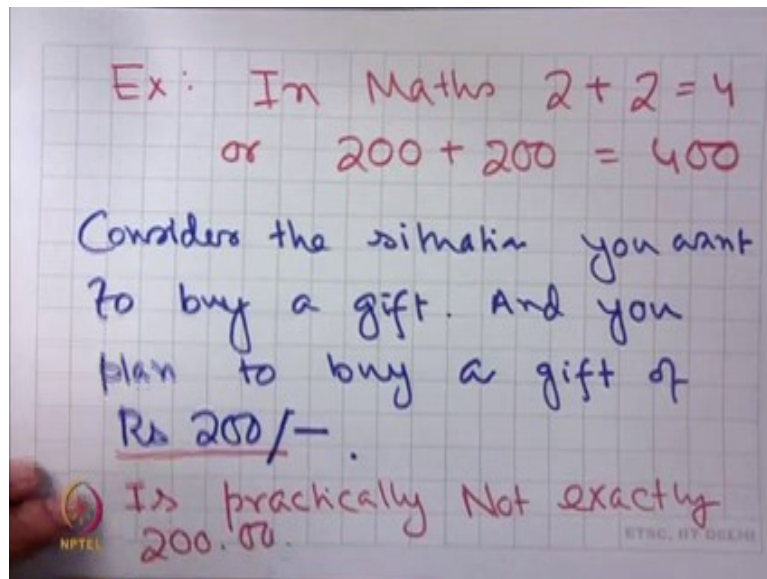 Ex: In Maths 2 + 2 = 4
or 200 + 200 = 400
Consider the situation you want
to buy a gift. And you
plan to buy a gift of
Rs 200/-.
Is practically Not exactly
200.00.
NPTEL
ETSC, IIT DELHI